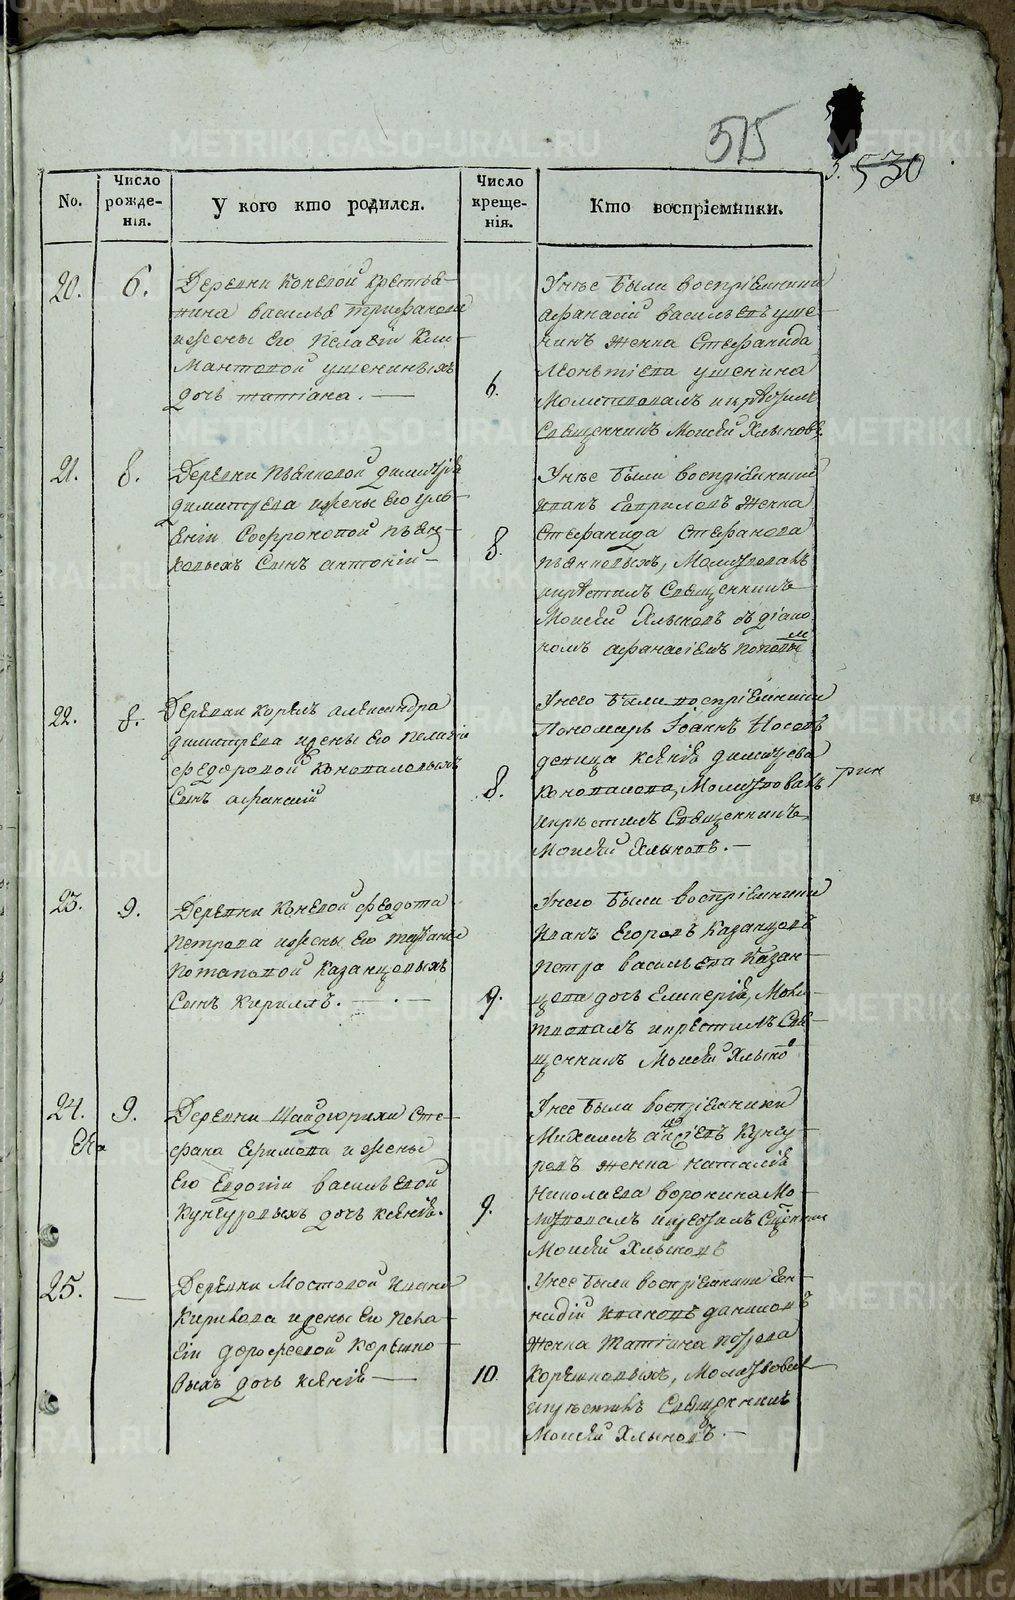 METRIKI.GASO-URAL.RU
515
530
No.
Число рожде-нія.
У кого кто родился.
Число креще-нія.
Кто воспріемники.
20.
6.
Деревни Коневой крестья-
нина Василья Трифанова
и жены его Пелагіи Кли-
мантовой Ушениныхъ
дочь татіана. —
6.
У нее были воспріемники
Афанасій Васильевъ уше-
нинъ женка Стефанида
Леонътіева ушенина
Молитвовалъ
Священникъ Моисей Хлыновъ
21.
8.
Деревни Пьянковой димитрія
димитріева и жены его уль-
еніи Софроновой пьян-
ковыхъ Сынъ антоній —
8.
У нее были воспріемники
Иванъ Гавриловъ Женка
Стефанида Стефанова
пьянковыхъ, Молитвовалъ
икрестилъ Священникъ
Моисей Хлыновъ съ діако
номъ афанасіемъ поповы
м
22.
8.
Деревни Корелъ александра
димитріева и жены его пелагіи
федоровой коноваловыхъ
Сынъ афанасій
8.
У него были воспріемники
Пономарь Іоаннъ Носовъ
девица ксенія димитріева
коновалова, Молитвовалъ
икрестилъ Священникъ
Моисей Хлыновъ. —
23.
9.
Деревни Коневой федота
петрова и жены его
потаповой казанцовыхъ
Сынъ Кириллъ. — . —
9.
У него были воспріемники
Иванъ Егоровъ Казанцовъ
петра васильева Казан-
цова дочь Гликерія, Моли-
твовалъ и крестилъ Свя-
щенникъ Моисей Хлыно
в
24.
9.
Деревни Шайдюрихи Сте-
фана Ефимова и жены
Его Евдокіи васильевой
кунгуровыхъ дочь ксенія.
9.
У нее были воспріемники
Михаилъ Кунгу-
ровъ женка наталія
Николаева воронина Мо-
литвовалъ икрестилъ Сщенникъ
Моисей Хлыновъ
25.
—
Деревни Мостовой Ивана
Кирилова и жены его пела-
геи дорофеевой корешко-
выхъ дочь ксенія —
10.
У нее были воспріемники Ген-
надій Ивановъ даниловъ
женка татіана
Корешковыхъ, Молитвовал
икрестилъ Священникъ
Моисей Хлыновъ. —